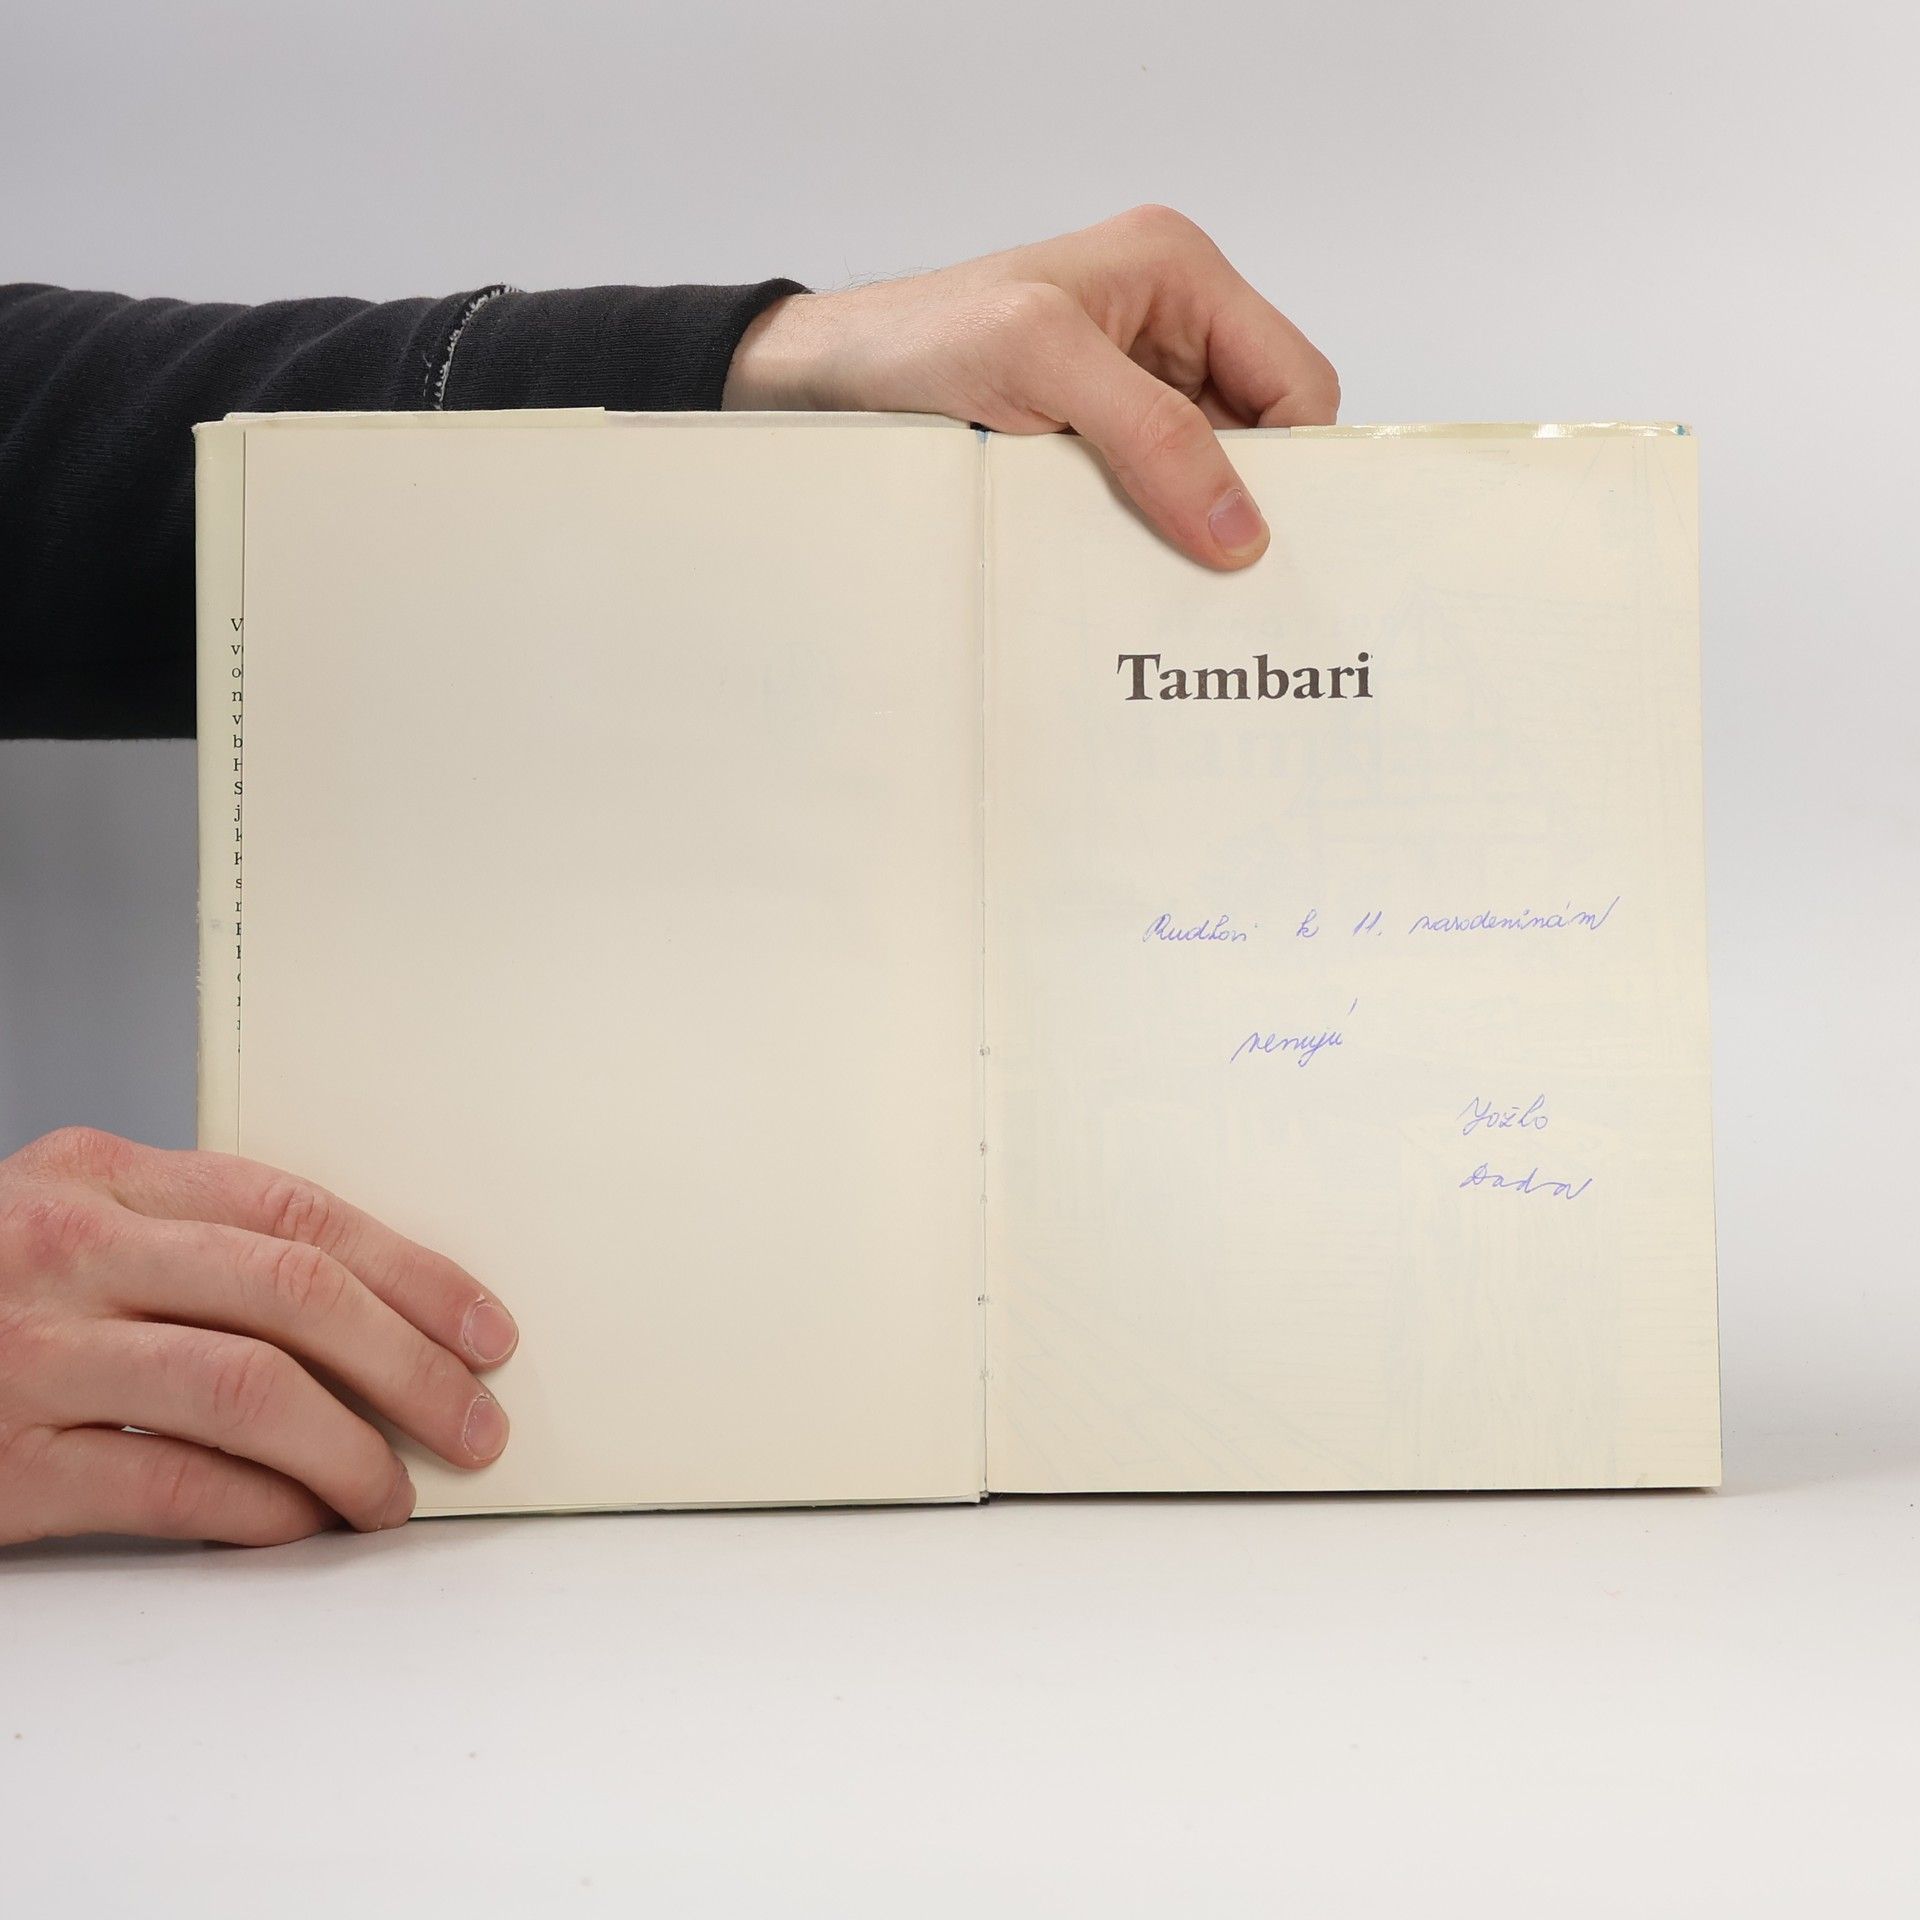 Tambari
Rudkovi k 11. narodeninám
venujú
Jožko
Dada
V
v
o
n
v
b
H
S
j
k
K
s
r